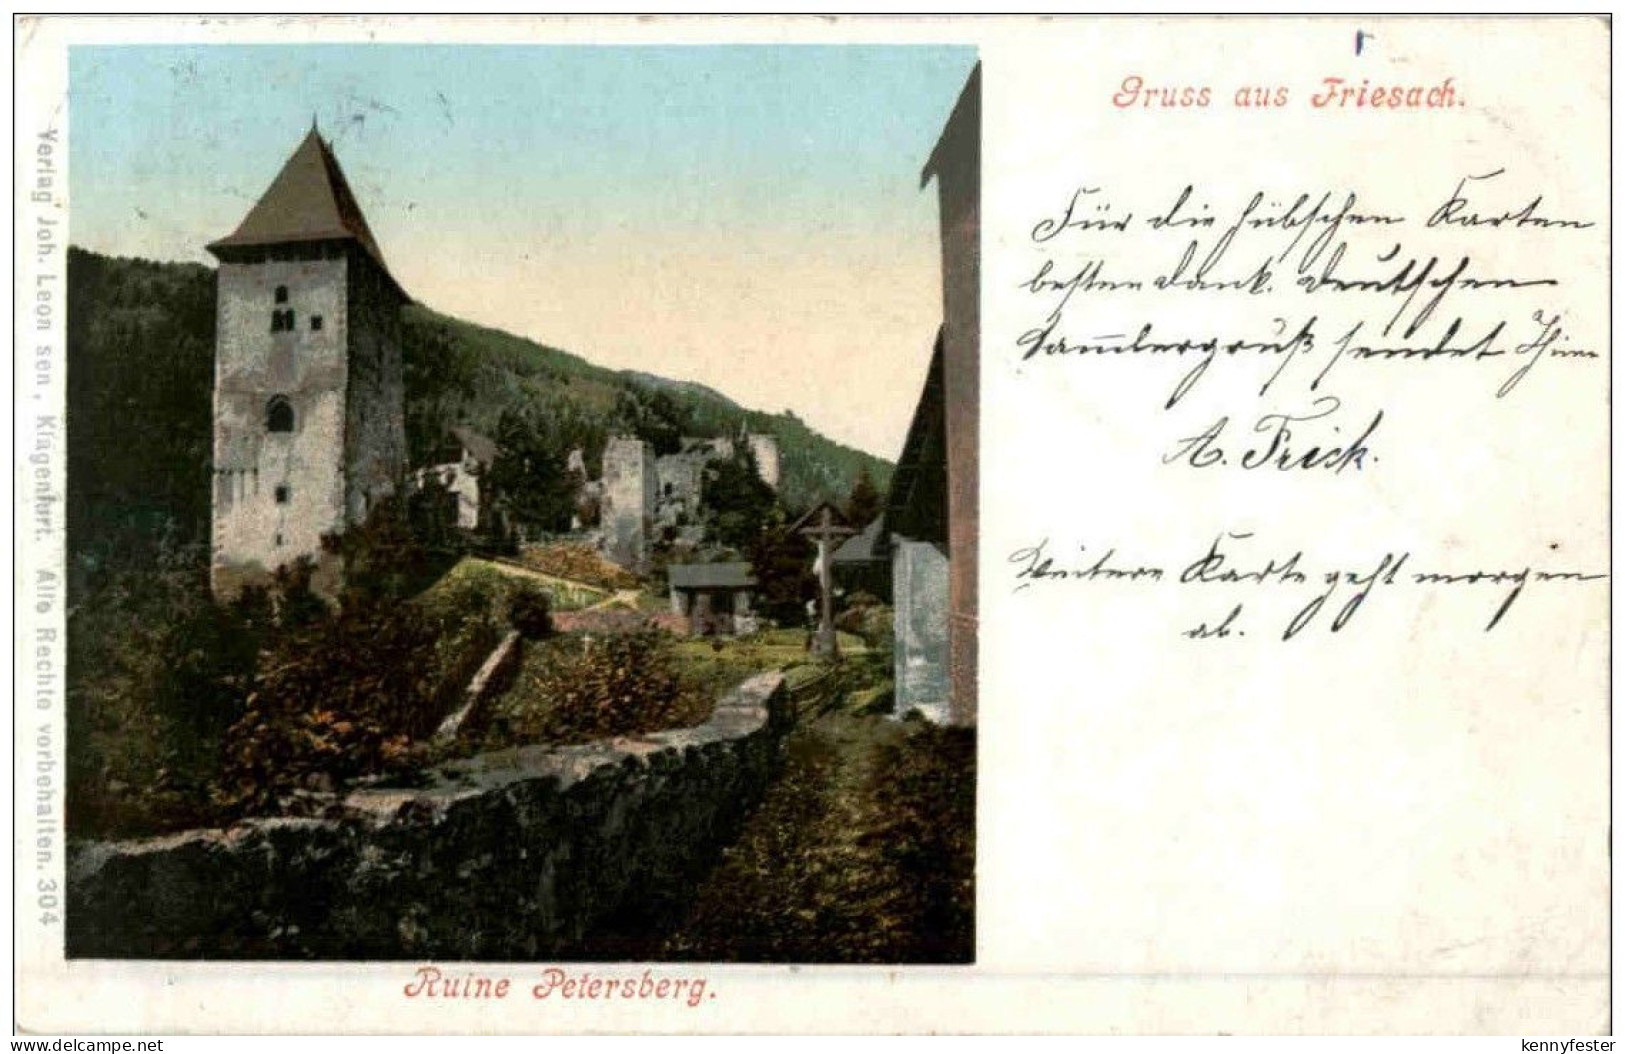 Gruss aus Friesach.
Für die hübschen Karten
besten Dank. Deutschen
Sammlergruß sendet Ihnen
A. Frick.
Weitere Karte geht morgen
ab.
Verlag Joh. Leon sen., Klagenfurt. Alle Rechte vorbehalten. 304
Ruine Petersberg.
www.delcampe.net
kennyfester